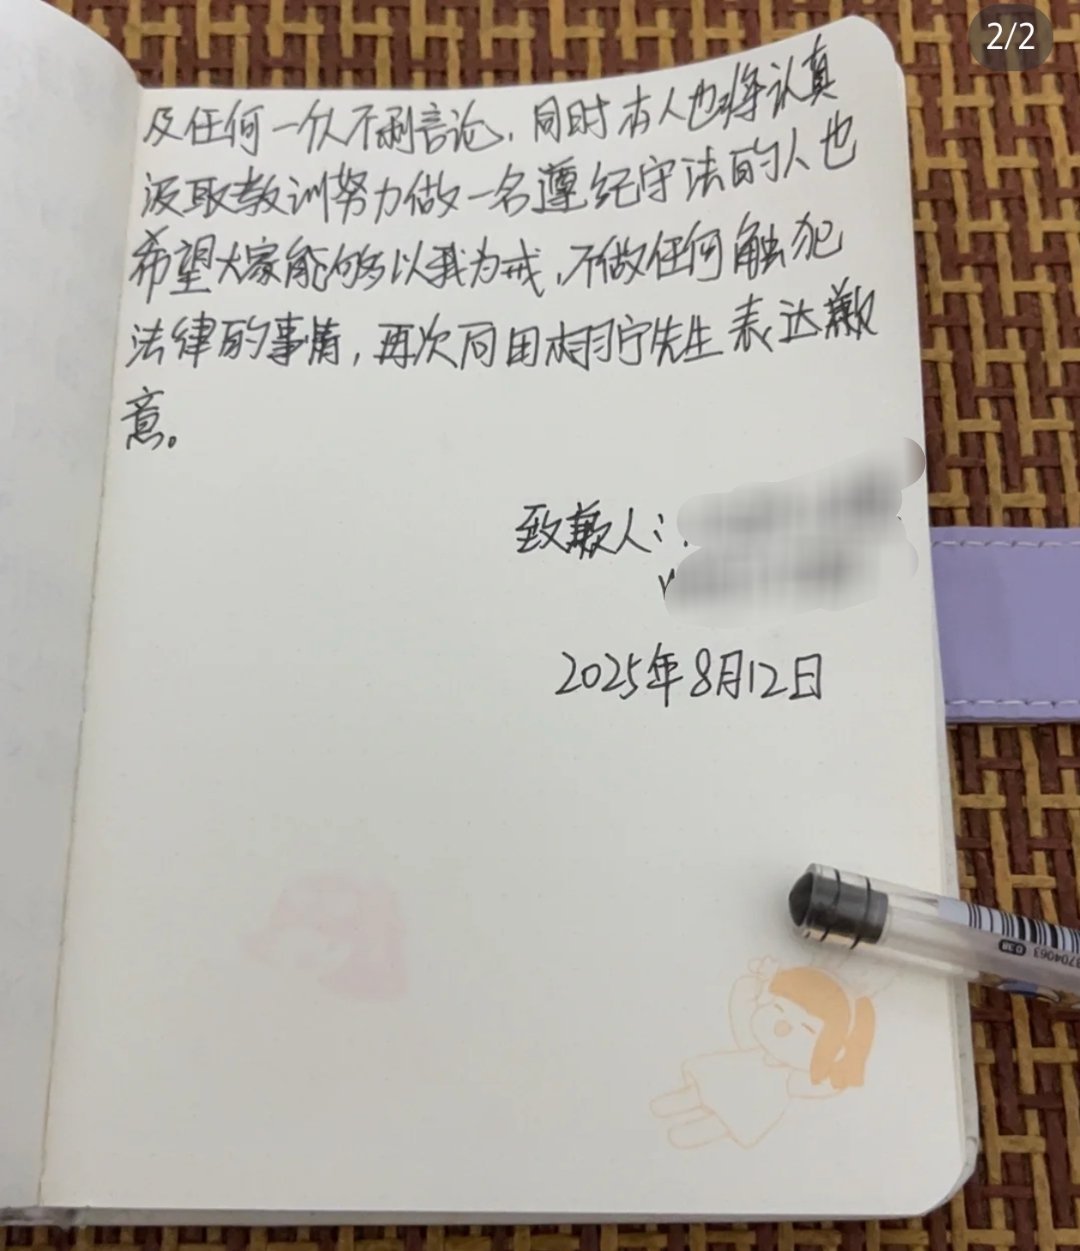 2/2
及任何一个不利言论，同时本人也将认真
汲取教训努力做一名遵纪守法的人也
希望大家能够以我为戒，不做任何触犯
法律的事情，再次向田栩宁先生表达歉
意。
致歉人：
2025年8月12日
0.38
3704063